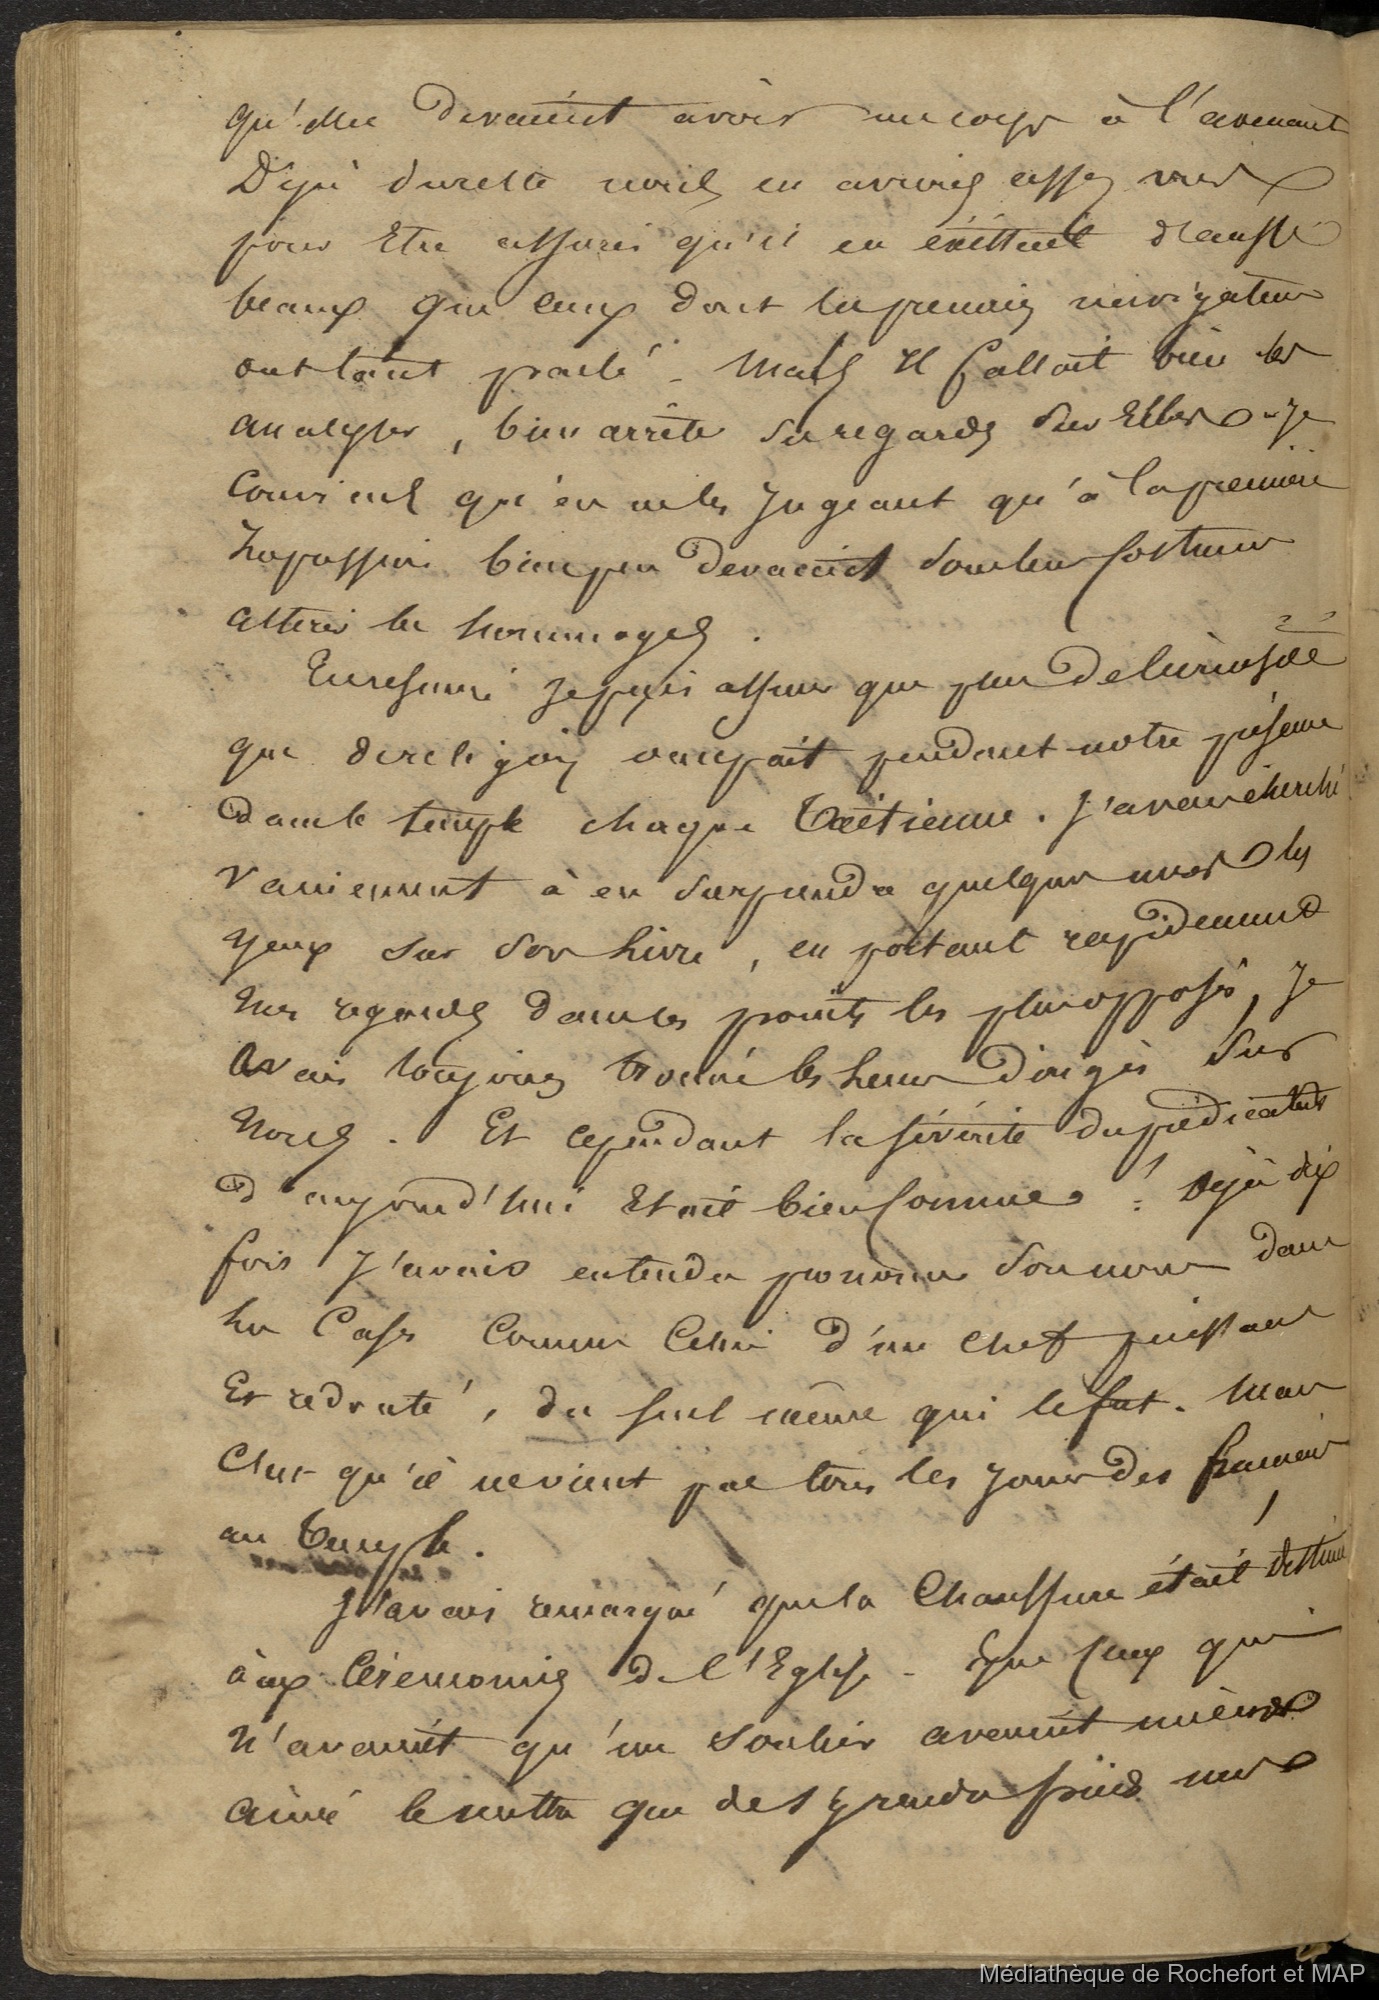 qu'elles devaient avoir un corps à l'avenant
Déjà du reste nous en avions assez vus
pour être assurés qu'il en existait d'aussi
beaux que ceux dont les premiers navigateurs
ont tant parlé - Mais Il fallait bien les
analyser, bien arrêter ses regards sur Elles - Je
conviens qu'en ne les jugeant qu'à la première
Impression bien peu devaient sous leur costume
attirer les hommages.
En résumé je puis assurer que plus de curiosité
que de religion occupait pendant notre présence
dans le temple chaque Taïtienne. J'avais cherché
vainement à en surprendre quelques unes les
yeux sur son livre, en portant rapidement
mes regards dans les points les plus opposés, Je
avais toujours trouvé les leurs dirigés sur
Nous. Et cependant la sévérité du prédicateur
d'aujourd'hui Etait bien connue ! Déjà dix
fois J'avais entendu prononcer son nom dans
les Cases comme Celui d'un chef puissant
Et redouté, du seul même qui le fut. Mais
C'est qu'il ne vient pas tous les jours des français
au Temple.
J'avais remarqué que la Chaussure était destinée
aux Cérémonies de l'Eglise - Que Ceux qui
N'avaient qu'un soulier avaient mieux
aimé le mettre que de s'y rendre pieds nus
Médiathèque de Rochefort et MAP